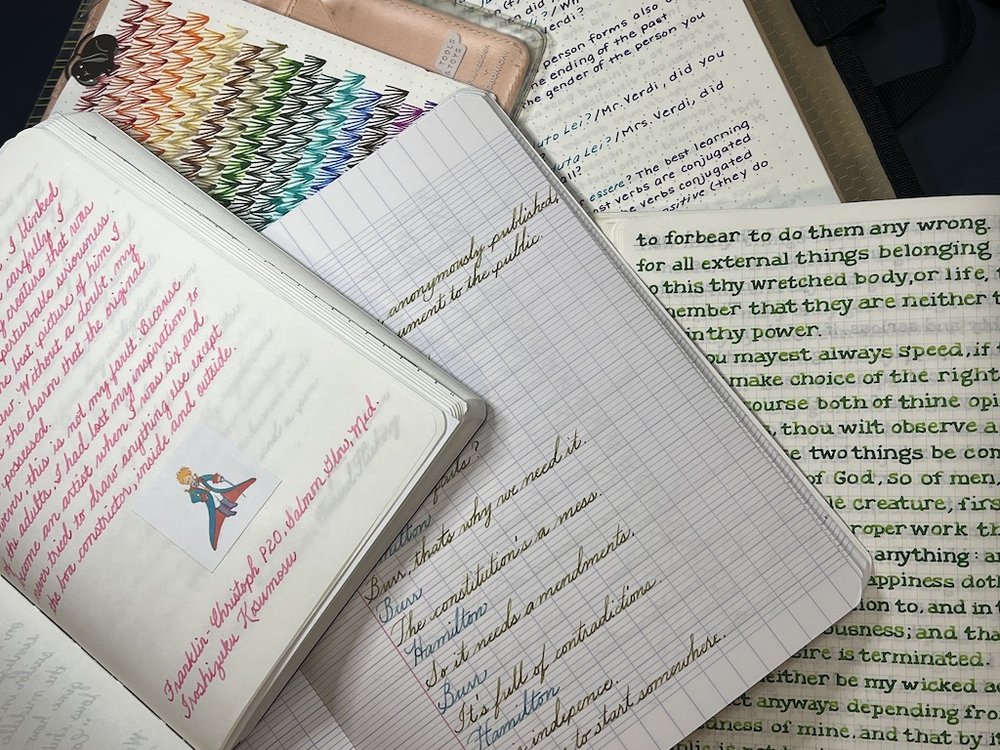 TOOLS
& TOYS
person forms also
he ending of the past
the gender of the person you
Lei?/Mr. Verdi, did you
Lei?/Mrs. Verdi, did
essere? The best learning
verbs are conjugated
the verbs conjugated
(they do
I blinked
carefully. I
creature that was
seriousness.
best picture of him I
Without a doubt, my
the charm that the original
possessed.
this is not my fault. Because
adults, I had lost my inspiration to
an artist when I was six and
never tried to draw anything else except
the boa constrictor, inside and outside.
Franklin-Christoph P20, Salmon Glow, Med.
Iroshizuku Kosumosu
anonymously published,
to the public
Burr, that's why we need it.
Burr
The constitution's a mess.
Hamilton
So it needs amendments.
Burr
It's full of contradictions.
Hamilton
independence.
to start somewhere.
to forbear to do them any wrong.
for all external things belonging
this thy wretched body, or life,
that they are neither
in thy power.
mayest always speed, if
make choice of the right
both of thine
, thou wilt observe a
two things be
of God, so of men,
creature,
work
anything:
doth
to, and in
; and
is terminated.
be my wicked
anyways depending
of mine, and that by